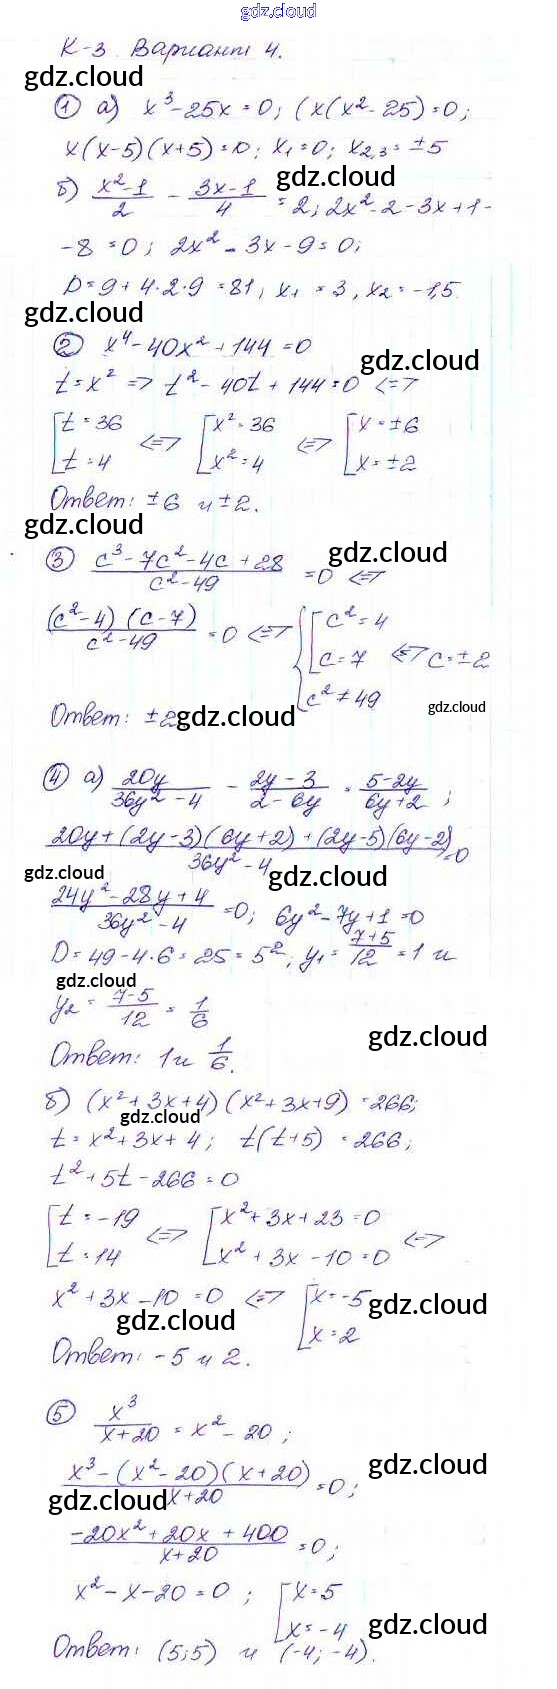 gdz.cloud
К-3 Вариант 4.
gdz.cloud
① а) x³-25x=0; (x(x²-25)=0;
x(x-5)(x+5)=0; x₁=0; x₂,₃=±5
gdz.cloud
б) (x²-1)/2 - (3x-1)/4 = 2; 2x²-2-3x+1-
-8=0; 2x²-3x-9=0;
D=9+4·2·9=81; x₁=3, x₂=-1,5
gdz.cloud
② x⁴-40x²+144=0
gdz.cloud
t=x² => t²-40t+144=0 <=>
[t=36 t=4 <=> [x²=36 x²=4 <=> [x=±6 x=±2
Ответ: ±6 и ±2.
gdz.cloud
gdz.cloud
③ (c³-7c²-4c+28)/(c²-49) = 0 <=>
((c²-4)(c-7))/(c²-49) = 0 <=> {[c²=4 c=7 c²≠49 <=> c=±2
Ответ: ±2
gdz.cloud
gdz.cloud
④ а) 20y/(36y²-4) - (2y-3)/(2-6y) = (5-2y)/(6y+2);
(20y+(2y-3)(6y+2)+(2y-5)(6y-2))/(36y²-4) = 0
gdz.cloud
gdz.cloud
(24y²-28y+4)/(36y²-4) = 0; 6y²-7y+1=0
D=49-4·6=25=5²; y₁=(7+5)/12=1 и
gdz.cloud
y₂=(7-5)/12=1/6
gdz.cloud
Ответ: 1 и 1/6.
б) (x²+3x+4)(x²+3x+9)=266;
gdz.cloud
t=x²+3x+4; t(t+5)=266;
t²+5t-266=0
[t=-19 t=14 <=> [x²+3x+23=0 x²+3x-10=0 <=>
x²+3x-10=0 <=> [x=-5 x=2
gdz.cloud
gdz.cloud
Ответ: -5 и 2.
⑤ x³/(x+20) = x²-20;
gdz.cloud
(x³-(x²-20)(x+20))/(x+20) = 0;
gdz.cloud
(-20x²+20x+400)/(x+20) = 0;
x²-x-20=0; [x=5 x=-4
gdz.cloud
Ответ: (5;5) и (-4;-4).